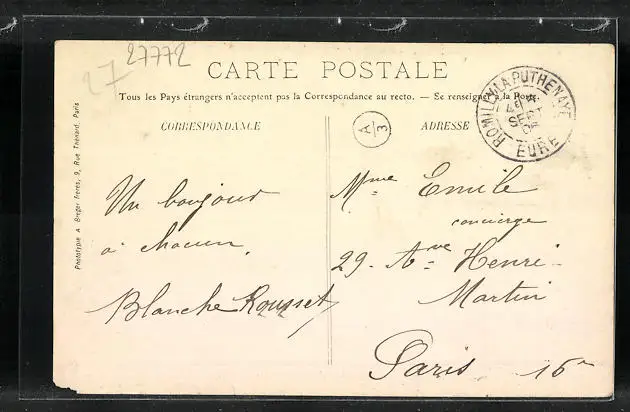 27772
27
CARTE POSTALE
Tous les Pays étrangers n'acceptent pas la Correspondance au recto. — Se renseigner à la Poste.
CORRESPONDANCE
A/3
ADRESSE
ROMILLY-LA-PUTHENAYE
4
SEPT
EURE
Phototypie A Breger frères, 9, Rue Thénard, Paris
Un bonjour
à chacun.
Blanche Rousset
Mme Emile
concierge
29. Ave Henri-
Martin
Paris 16e